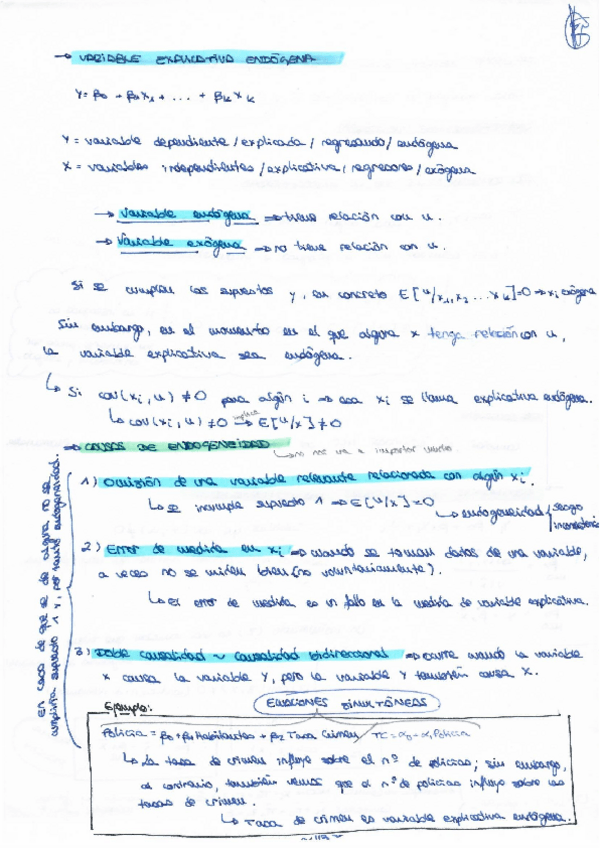 → VARIABLE EXPLICATIVA ENDÓGENA
Y = β0 + β1X1 + ... + βkXk
Y = variable dependiente / explicada / regresando / endógena
X = variables independientes / explicativa / regresores / exógena
→ Variable endógena ⇒ tiene relación con u.
→ Variable exógena ⇒ no tiene relación con u.
Si se cumplen los supuestos y, en concreto E[u/x1, x2 ... xk]=0 ⇒ xi exógena
Sin embargo, en el momento en el que alguna x tenga relación con u,
la variable explicativa sea endógena.
↳ Si cov(xi, u) ≠ 0 para algún i ⇒ esa xi se llama explicativa endógena.
↳ cov(xi, u) ≠ 0 implica → E[u/x] ≠ 0
⇒ CAUSAS DE ENDOGENEIDAD
↳ no me va a importar mucho.
En caso de que se dé alguna, no se
cumpliría supuesto 1 y, por tanto endogeneidad.
1) Omisión de una variable relevante relacionada con algún xi.
↳ se incumple supuesto 1 ⇒ E[u/x]=0
↳ endogeneidad sesgo
2) Error de medida en xi ⇒ cuando se toman datos de una variable,
a veces no se miden bien (no voluntariamente).
↳ El error de medida es un fallo en la medida de variable explicativa.
3) Doble causalidad ~ causalidad bidireccional ⇒ ocurre cuando la variable
x causa la variable Y, pero la variable Y también causa X.
Ejemplo: ECUACIONES SIMULTÁNEAS
Policía = β0 + β1 Habitantes + β2 Tasa Crimen TC = α0 - α1 Policía
↳ La tasa de crimen influye sobre el nº de policías; sin embargo,
al contrario, también vemos que el nº de policías influye sobre las
tasas de crimen.
↳ Tasa de crimen es variable explicativa endógena.